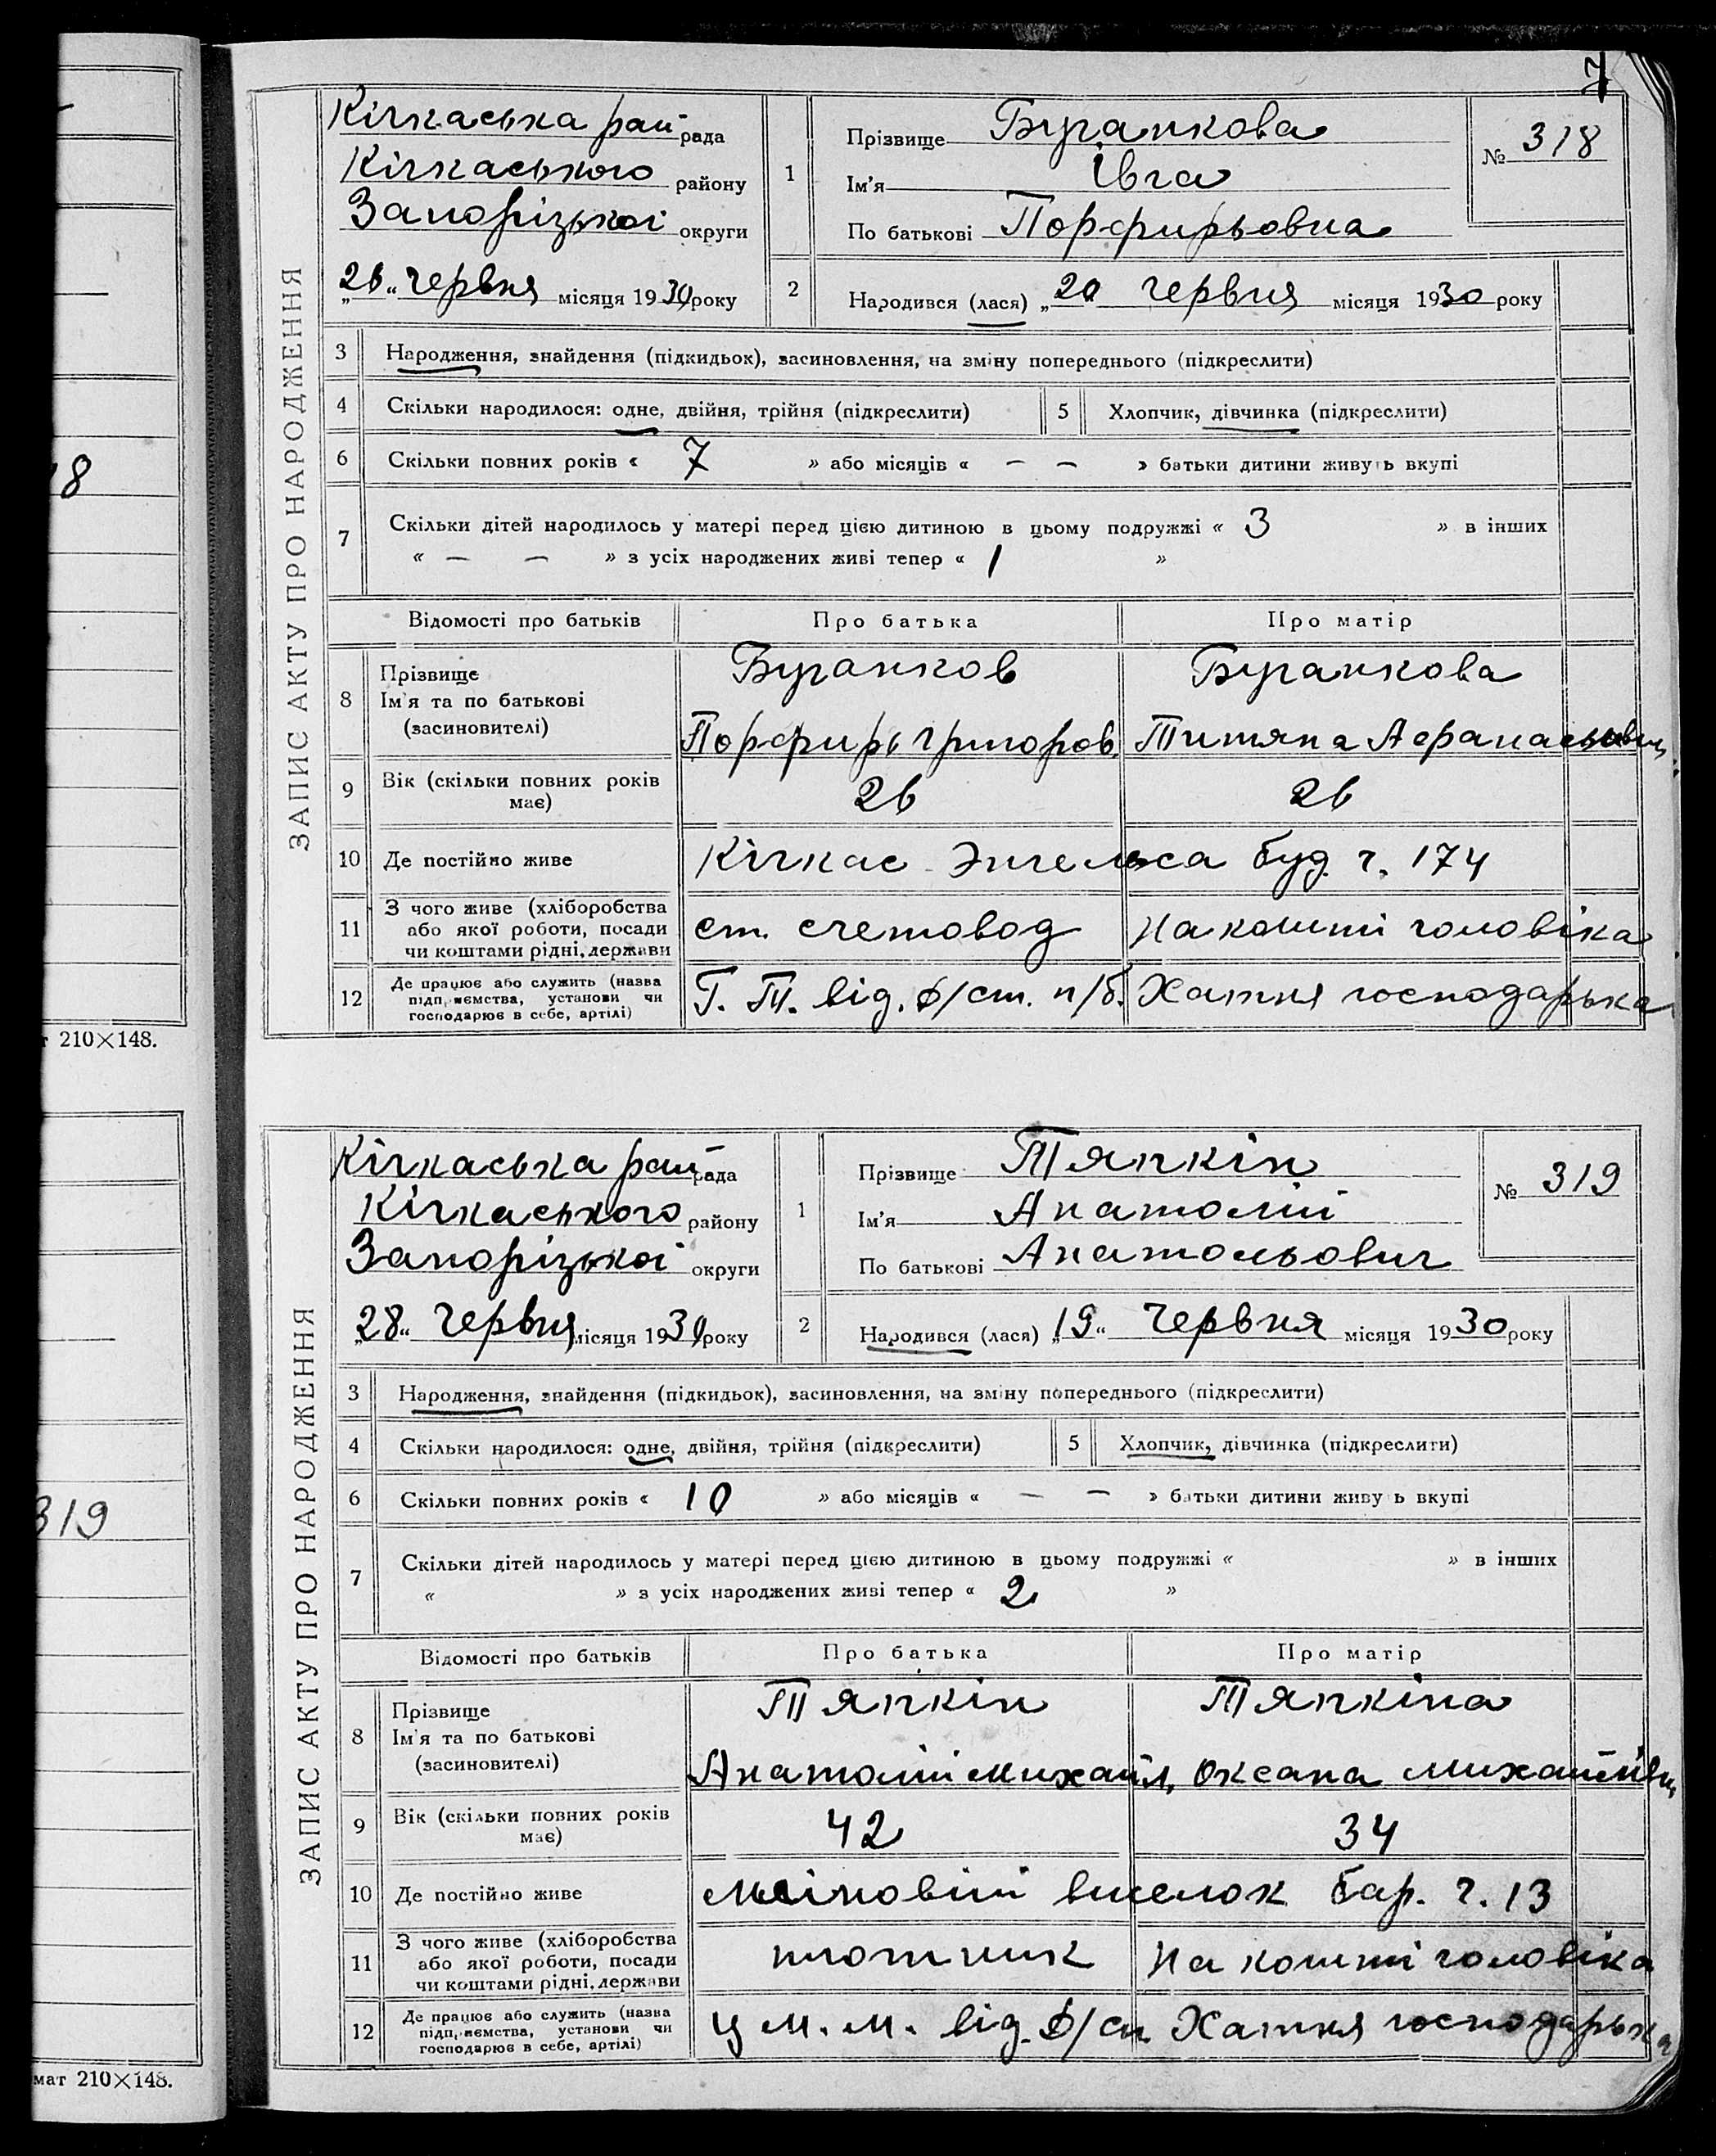 7
18
т 210×148.
319
мат 210×148.
ЗАПИС АКТУ ПРО НАРОДЖЕННЯ
Кічкаська рай рада
Кічкаського району
Запорізької округи
„26„ червня місяця 1930 року
1
Прізвище Буганкова
Ім'я Івга
По батькові Порфирьовна
№ 318
2
Народився (лася) „20 червня місяця 1930 року
3 Народження, знайдення (підкидьок), засиновлення, на зміну попереднього (підкреслити)
4 Скільки народилося: одне, двійня, трійня (підкреслити) 5 Хлопчик, дівчинка (підкреслити)
6 Скільки повних років « 7 » або місяців « — — » батьки дитини живуть вкупі
7 Скільки дітей народилось у матері перед цією дитиною в цьому подружжі « 3 » в інших
« — — » з усіх народжених живі тепер « 1 »
Відомості про батьків Про батька Про матір
8 Прізвище
Ім'я та по батькові
(засновителі)
Буганков
Порфирь Григоров.
Буганкова
Титяна Афанасьевн.
9 Вік (скільки повних років має) 26 26
10 Де постійно живе Кічкас Энгельса буд. ч. 174
11 З чого живе (хліборобства
або якої роботи, посади
чи коштами рідні, держави
ст. счетовод На кошти чоловіка
12 Де працює або служить (назва
підприємства, установи чи
господарює в себе, артілі)
Г. Т. від. Д/ст. п/б. Хатня господарька
ЗАПИС АКТУ ПРО НАРОДЖЕННЯ
Кічкаська рай рада
Кічкаського району
Запорізької округи
„28„ червня місяця 1930 року
1
Прізвище Тяпкін
Ім'я Анатолій
По батькові Анатольович
№ 319
2
Народився (лася) „19„ червня місяця 1930 року
3 Народження, знайдення (підкидьок), засиновлення, на зміну попереднього (підкреслити)
4 Скільки народилося: одне, двійня, трійня (підкреслити) 5 Хлопчик, дівчинка (підкреслити)
6 Скільки повних років « 10 » або місяців « — — » батьки дитини живуть вкупі
7 Скільки дітей народилось у матері перед цією дитиною в цьому подружжі « » в інших
« » з усіх народжених живі тепер « 2 »
Відомості про батьків Про батька Про матір
8 Прізвище
Ім'я та по батькові
(засиновителі)
Тяпкін
Анатолій Михайл.
Тяпкіна
Оксана Михайлівн.
9 Вік (скільки повних років має) 42 34
10 Де постійно живе виселок бар. ч. 13
11 З чого живе (хліборобства
або якої роботи, посади
чи коштами рідні, держави
плотник На кошти чоловіка
12 Де працює або служить (назва
підприємства, установи чи
господарює в себе, артілі)
Ц М. М. від. Д/ст. Хатня господарька